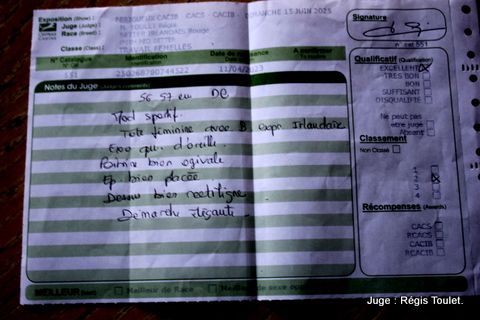 Exposition (Show) : PERIGUEUX CACIB CACS CACIB - DIMANCHE 15 JUIN 2025
Juge (Judge) : M. TOULET Régis
Race (Breed) : SETTER IRLANDAIS Rouge
Classe (Class) : TRAVAIL FEMELLES
N° Catalogue Identification Date de naissance A confirmer
551 250268780744522 11/04/2023
Signature
n° cat 551
Notes du Juge
56.57 cm DC
Mod sportif.
Tete feminine avec B. expr Irlandaise
Exc qu. d'oreille
Poitrine bien ogivale
Ep. bien placée.
Dessus bien rectiligne
Demarche élégante.
Qualificatif (Qualification)
EXCELLENT
TRES BON
BON
SUFFISANT
DISQUALIFIE
Ne peut pas
être jugé
Absent
Classement
Non Classé
1
2
3
4
Récompenses (Awards)
CACS
RCACS
CACIB
RCACIB
MEILLEUR Meilleur de Race Meilleur de sexe opposé
Juge : Régis Toulet.